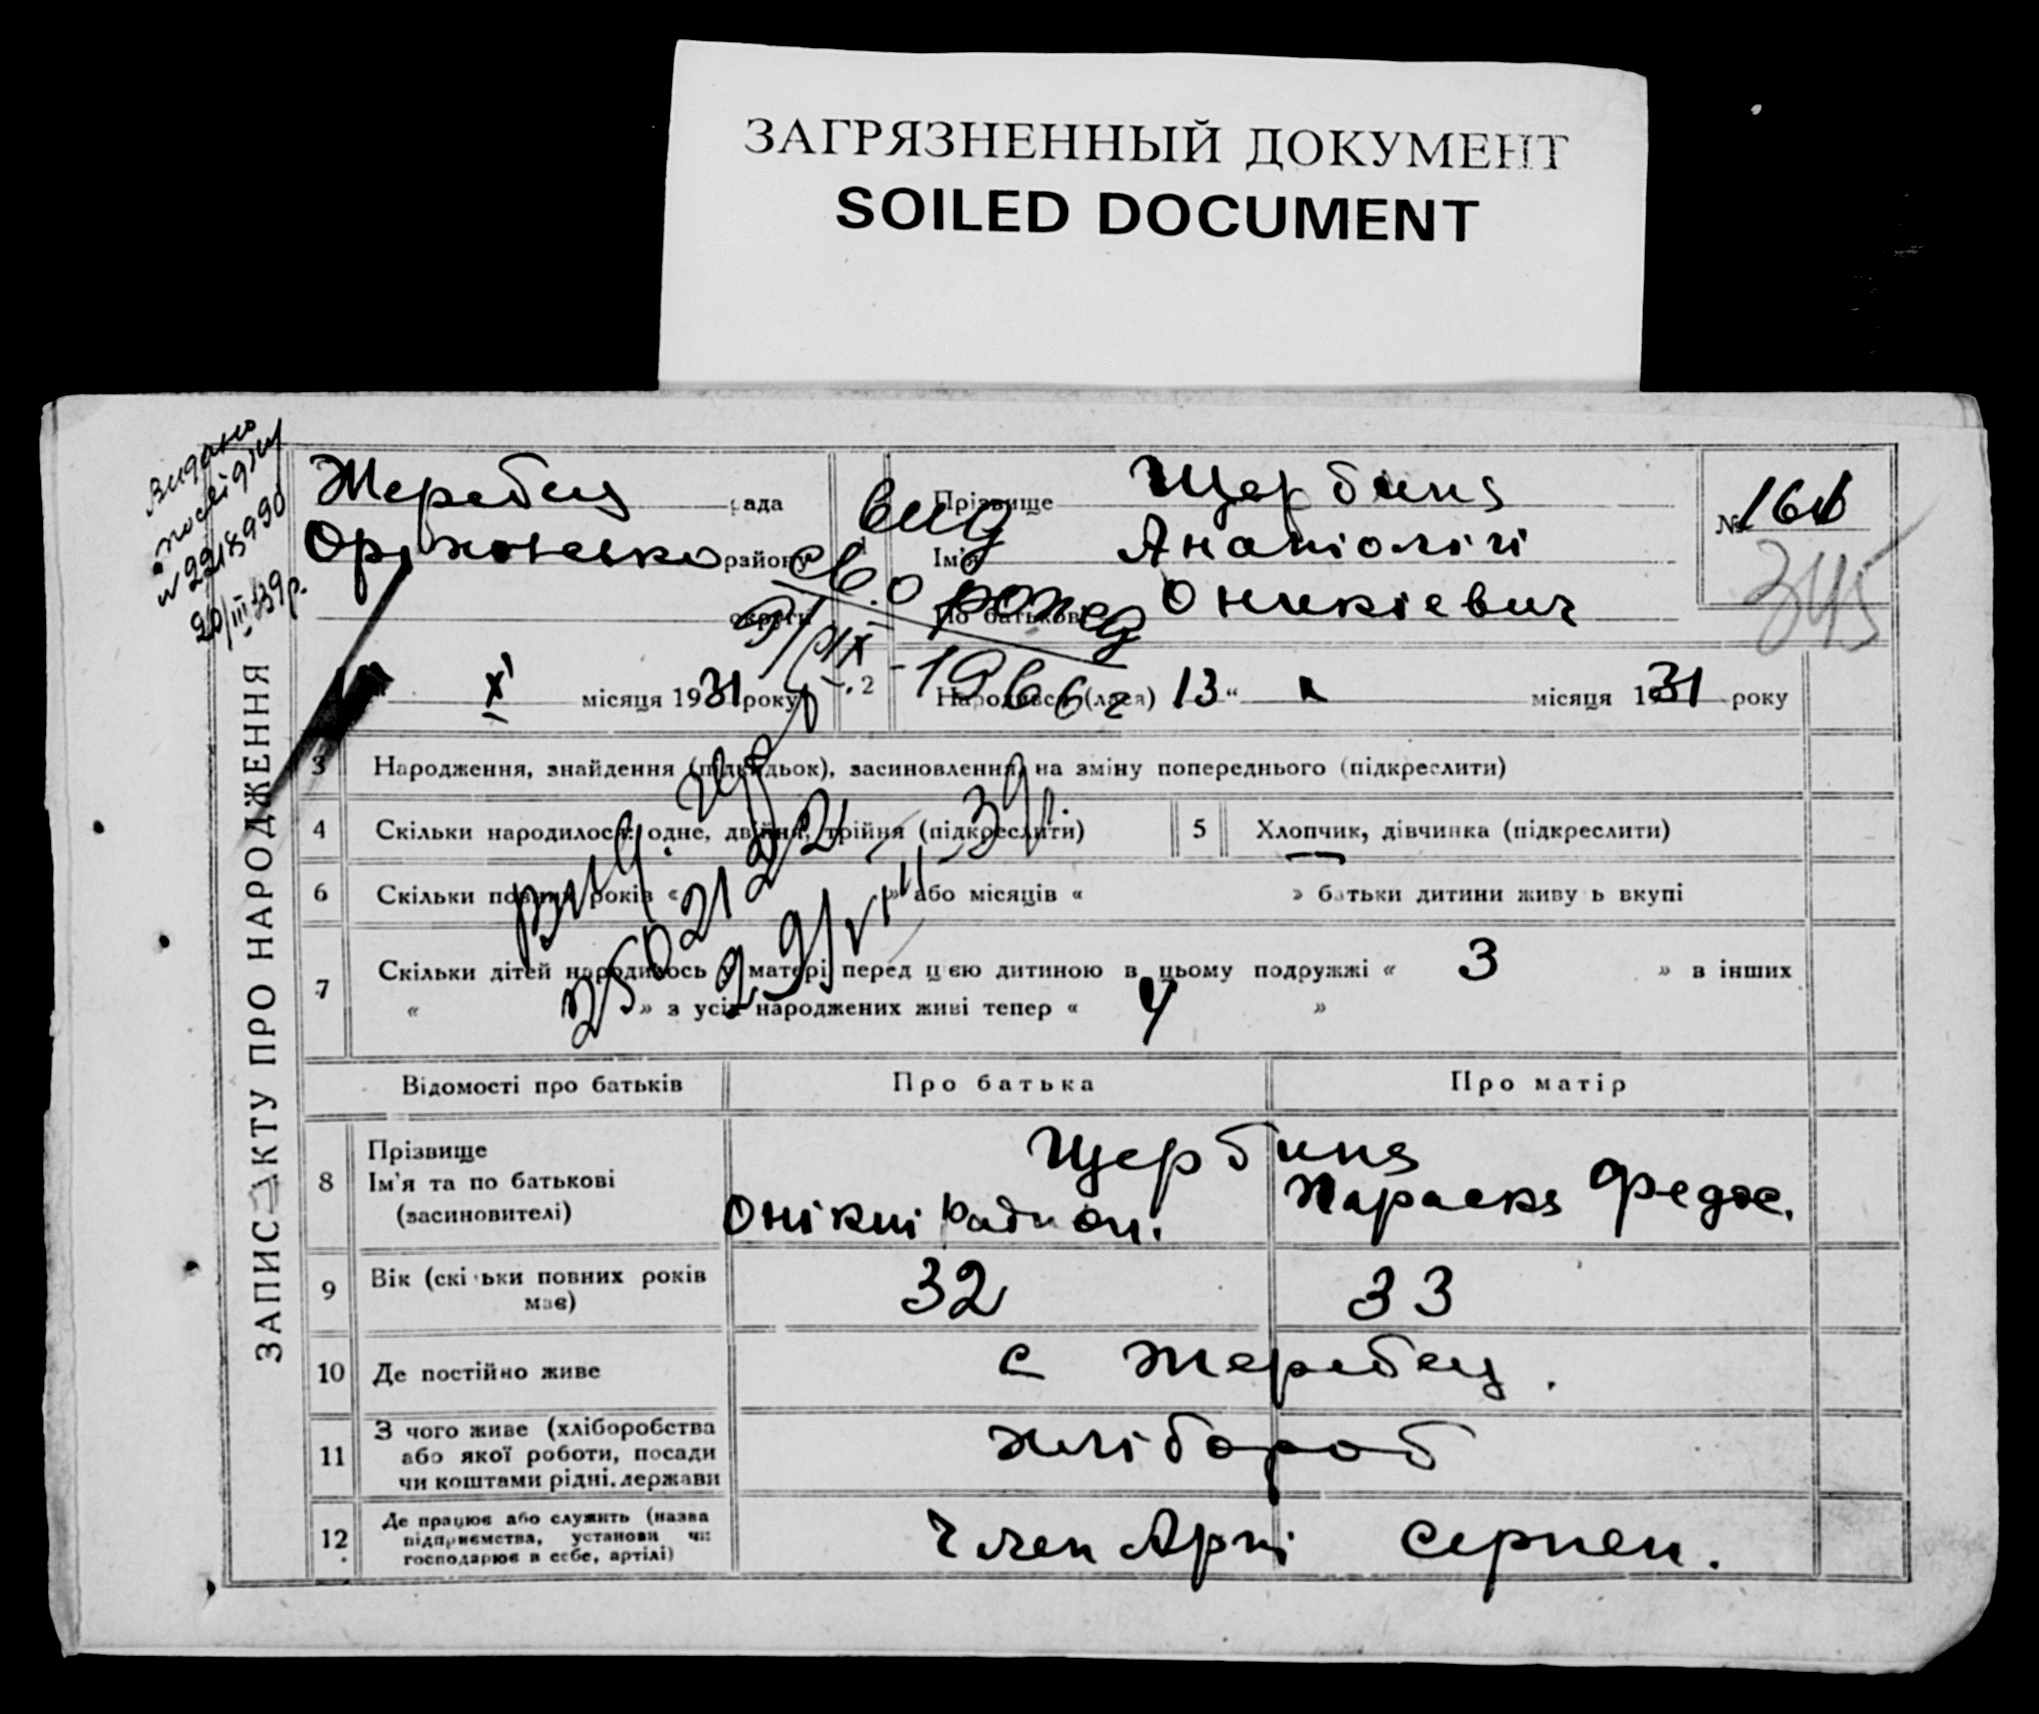 ЗАГРЯЗНЕННЫЙ ДОКУМЕНТ
SOILED DOCUMENT
Видано
№ 2218990
20/III-39р.
ЗАПИС АКТУ ПРО НАРОДЖЕННЯ
Жеребец рада
району
округи
Прізвище Щербина
Ім'я Анатолій
По батькові Оникіевич
№ 161
345
вид
св. о рожд
1966 г
X місяця 1931 року
2 Народився (лася) 13 “ місяця 1931 року
3 Народження, знайдення (підкидьок), засиновлення, на зміну попереднього (підкреслити)
4 Скільки народилося: одне, двійня, трійня (підкреслити)
5 Хлопчик, дівчинка (підкреслити)
6 Скільки повних років « » або місяців « » батьки дитини живу ь вкупі
29/VIII-39р.
7 Скільки дітей народилось у матері перед цією дитиною в цьому подружжі « 3 » в інших
« » з усіх народжених живі тепер « 4 »
Відомості про батьків Про батька Про матір
8 Прізвище
Ім'я та по батькові
(засиновителі)
Щербина
Онікий Параска Федос.
9 Вік (скі ьки повних років
має)
32 33
10 Де постійно живе с Жеребец.
11 З чого живе (хліборобства
або якої роботи, посади
чи коштами рідні, держави
хлібороб
12 Де працює або служить (назва
підприємства, установи чи
господарює в себе, артілі)
Член Арт Серпен.